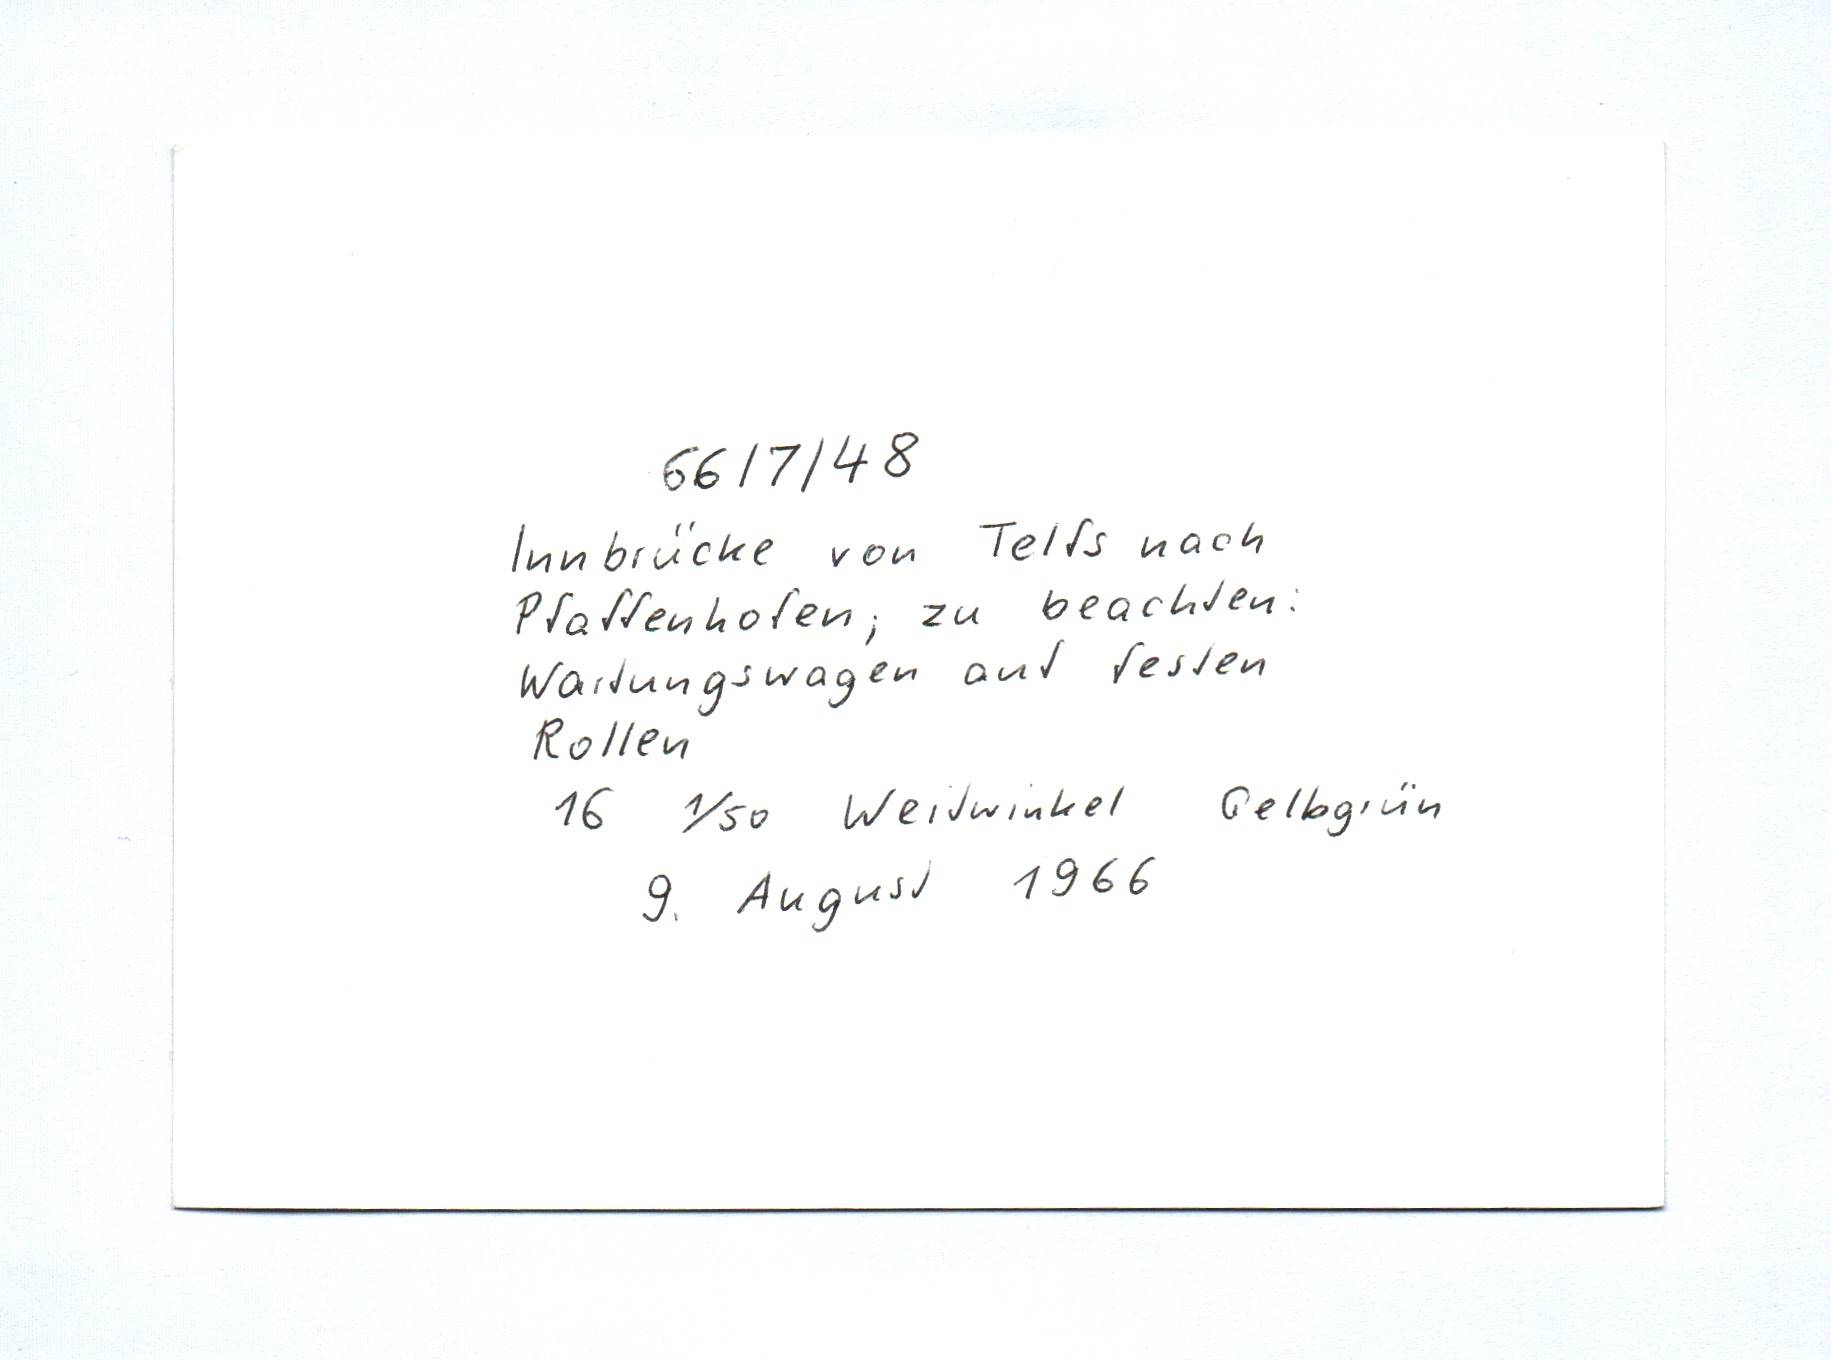 66/7/48
Innbrücke von Telfs nach
Pfaffenhofen; zu beachten:
Wartungswagen auf festen
Rollen
16 1/50 Weitwinkel Gelbgrün
9. August 1966